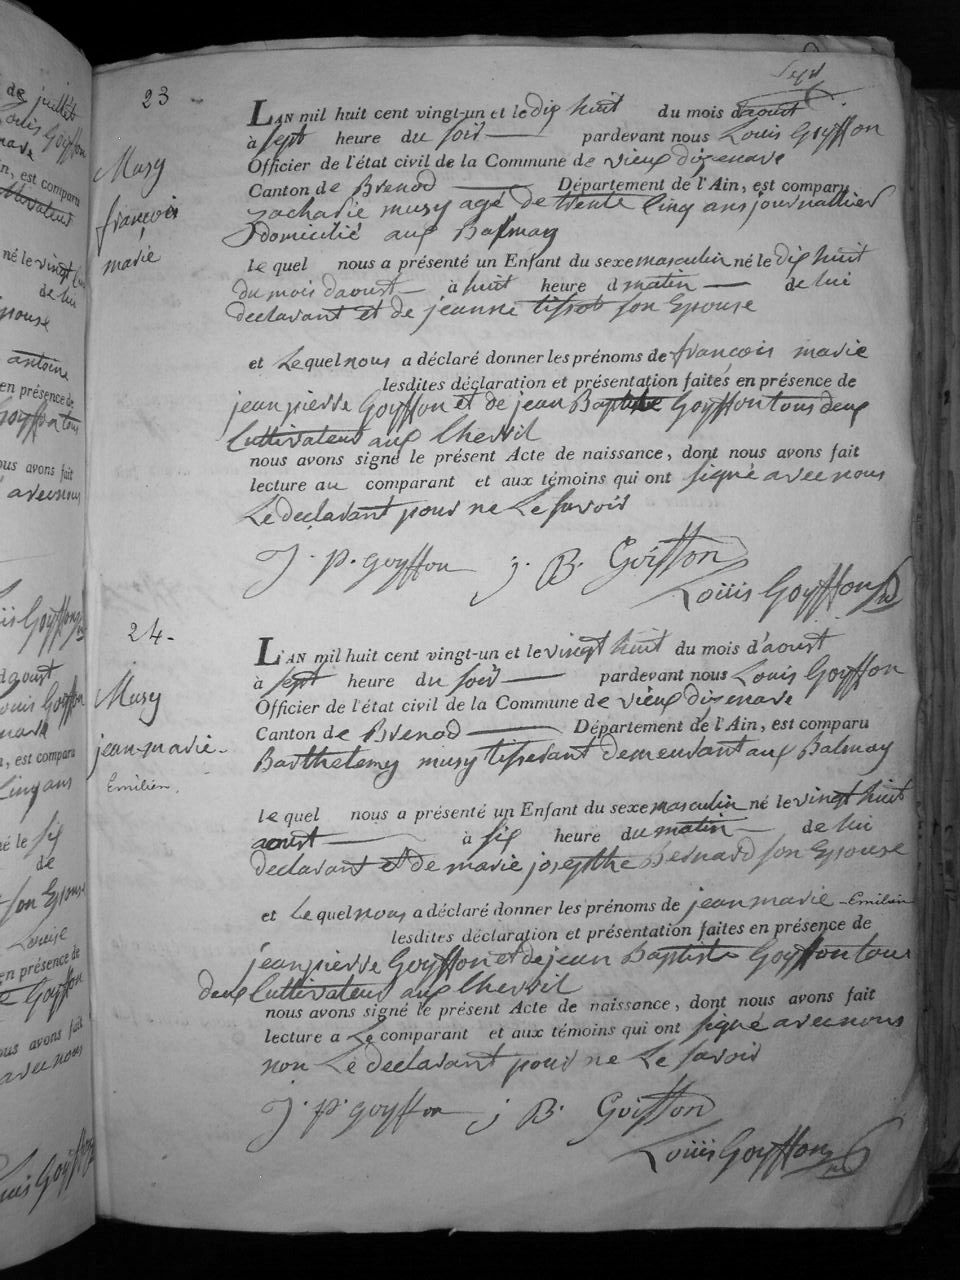 23
Musy
françois
marie
L'AN mil huit cent vingt-un et le dix huit du mois daoust
à sept heure du soir pardevant nous Louis Goyffon
Officier de l'état civil de la Commune de vieux dizenave
Canton de Brenod Département de l'Ain, est comparu
zacharie musy agé de trente Cinq ans journallier
domicilié aux Balmay
le quel nous a présenté un Enfant du sexe masculin né le dix huit
du mois daoust à huit heure d matin de lui
declarant et de jeanne tissot son Epouse
et Lequel nous a déclaré donner les prénoms de françois marie
lesdites déclaration et présentation faites en présence de
jean pierre Goyffon et de jean Baptiste Goyffon tous deux
Cultivateur aux Chevril
nous avons signé le présent Acte de naissance, dont nous avons fait
lecture au comparant et aux témoins qui ont signé avec nous
Le declarant pour ne Le savoir
J. p. goyffon j. B. Goiffon
Louis Goyffon
24.
Musy
jean-marie-
Emilien.
L'AN mil huit cent vingt-un et le vingt huit du mois d'aoust
à sept heure du soir pardevant nous Louis Goyffon
Officier de l'état civil de la Commune de vieux dizenave
Canton de Brenod Département de l'Ain, est comparu
Barthelemy musy tisserant demeurant aux Balmay
le quel nous a présenté un Enfant du sexe masculin né le vingt huit
aoust à six heure du matin de lui
declarant et de marie josepthe Bernard son Epouse
et Lequel nous a déclaré donner les prénoms de jean marie - Emilien
lesdites déclaration et présentation faites en présence de
jean pierre Goyffon et de jean Baptiste Goyffon tous
deux Cultivateur aux Chevril
nous avons signé le présent Acte de naissance, dont nous avons fait
lecture a Le comparant et aux témoins qui ont signé avec nous
non Le declarant pour ne Le savoir
J. p. goyffon j B. Goiffon
Louis Goyffon